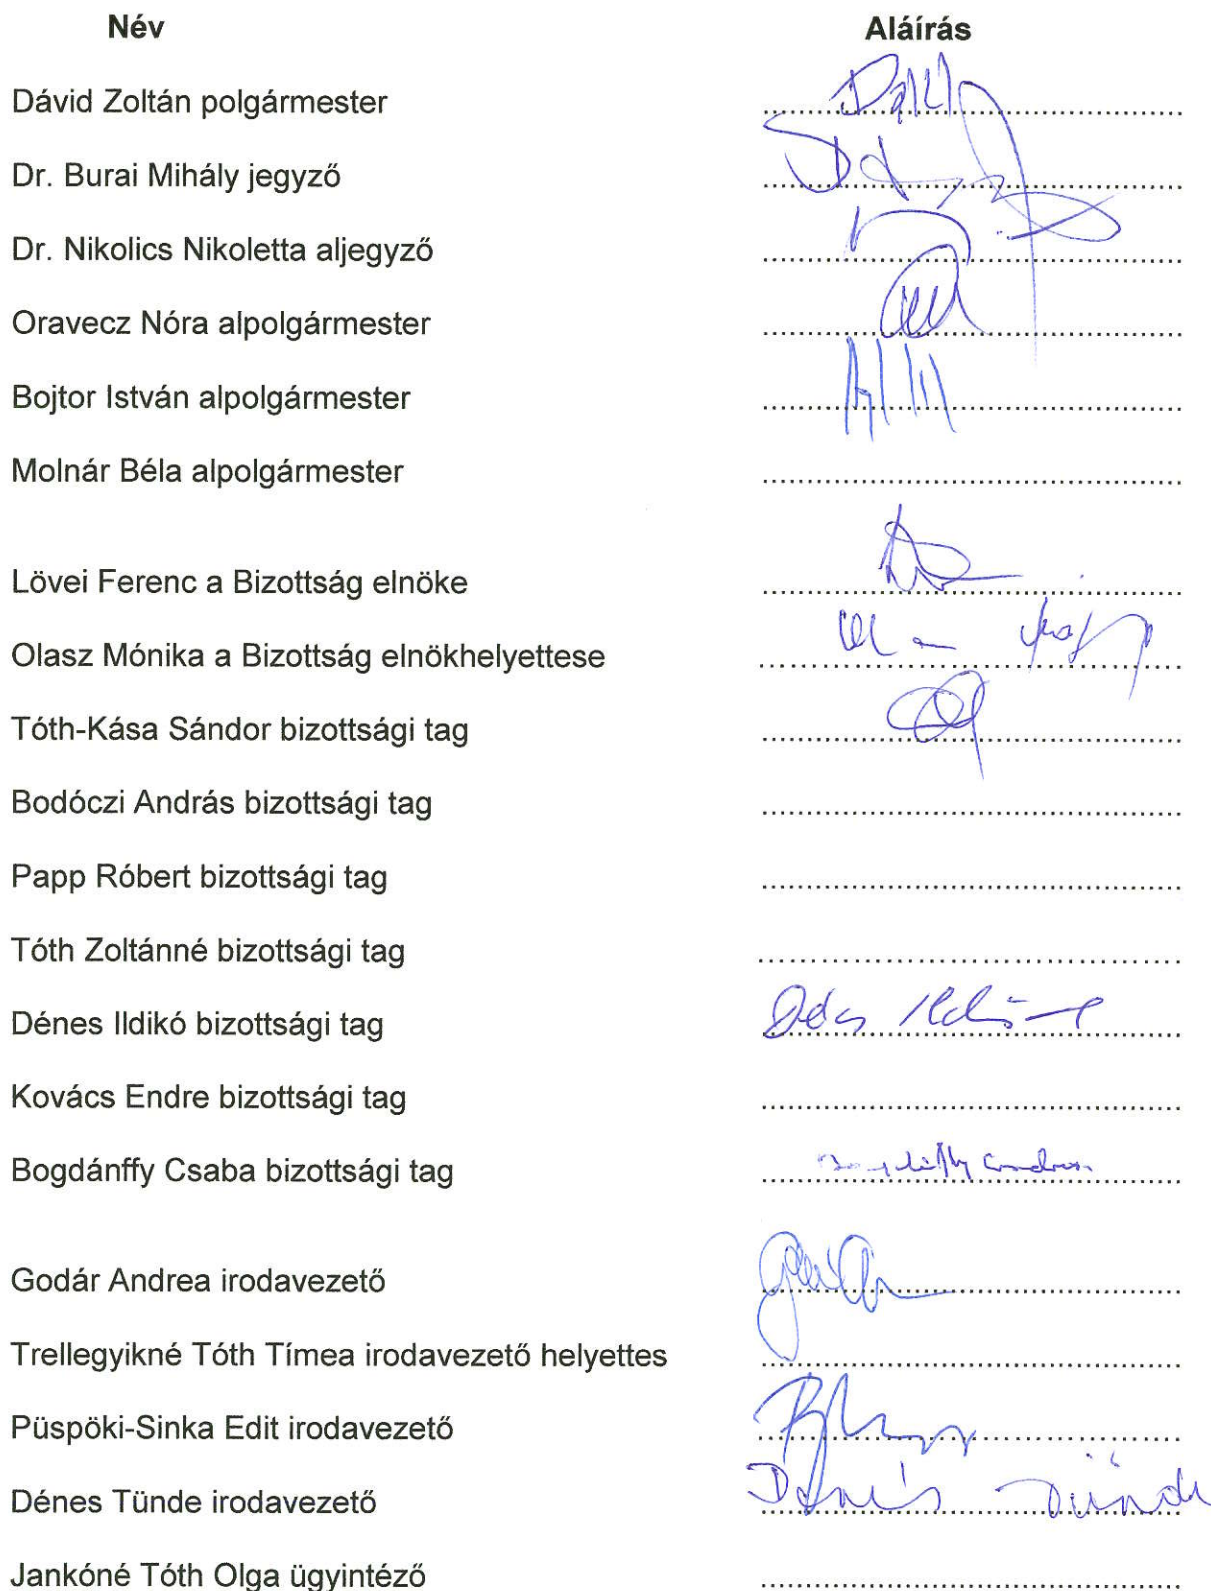 Név Aláírás
Dávid Zoltán polgármester ........................................
Dr. Burai Mihály jegyző ........................................
Dr. Nikolics Nikoletta aljegyző ........................................
Oravecz Nóra alpolgármester ........................................
Bojtor István alpolgármester ........................................
Molnár Béla alpolgármester ........................................
Lövei Ferenc a Bizottság elnöke ........................................
Olasz Mónika a Bizottság elnökhelyettese ........................................
Tóth-Kása Sándor bizottsági tag ........................................
Bodóczi András bizottsági tag ........................................
Papp Róbert bizottsági tag ........................................
Tóth Zoltánné bizottsági tag ........................................
Dénes Ildikó bizottsági tag ........................................
Kovács Endre bizottsági tag ........................................
Bogdánffy Csaba bizottsági tag ........................................
Godár Andrea irodavezető ........................................
Trellegyikné Tóth Tímea irodavezető helyettes ........................................
Püspöki-Sinka Edit irodavezető ........................................
Dénes Tünde irodavezető Dénes Tünde
Jankóné Tóth Olga ügyintéző ........................................